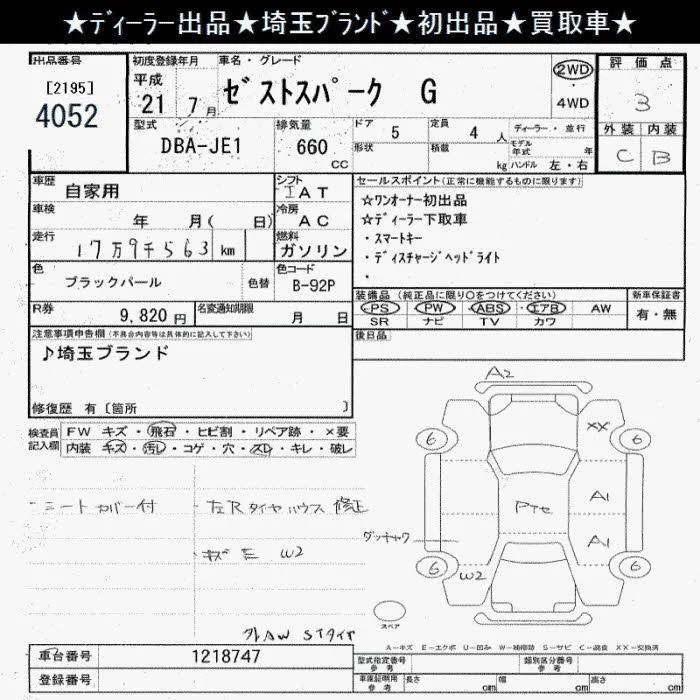 ★ディーラー出品★埼玉ブランド★初出品★買取車★
出品番号
[2195]
4052
初度登録年月
平成
21 7月
車名・グレード
ゼストスパーク G
2WD
・
4WD
評価点
3
外装 内装
C B
型式
DBA-JE1
排気量
660
CC
ドア
5
定員
4 人
形状
積載
kg
ディーラー・並行
モデル年式 年
ハンドル 左・右
車歴
自家用
シフト
IAT
車検
年 月( 日)
冷房
AC
走行
17万9千563 km
燃料
ガソリン
色
ブラックパール
色替
色コード
B-92P
R券
9,820 円
名変通知期限
月 日
セールスポイント(正常に機能するものに限ります)
☆ワンオーナー初出品
☆ディーラー下取車
・スマートキー
・ディスチャージヘッドライト
・
装備品 (純正品に限り○をつけてください)
PS PW ABS エアB AW
SR ナビ TV カワ
新車保証書
有・無
後日品
注意事項申告欄(不具合内容等は具体的に記入して下さい)
♪埼玉ブランド
修復歴 有〔箇所 〕
検査員記入欄
FW キズ・飛石・ヒビ割・リペア跡・×要
内装 キズ・汚レ・コゲ・穴・スレ・キレ・破レ
シートカバー付
左Rタイヤハウス 修正
キズ E W2
外AW Sタイヤ
A2
XX
6
6
Pte
A1
A1
ダッチャク
6
6
W2
スペア
A-キズ E-エクボ U-凹み W-補修跡 S-サビ C-腐食 XX-交換済
車台番号
1218747
登録番号
型式指定番号
参考
類別区分番号
参考
車庫証明用
参考
長さ cm 幅 cm 高さ cm